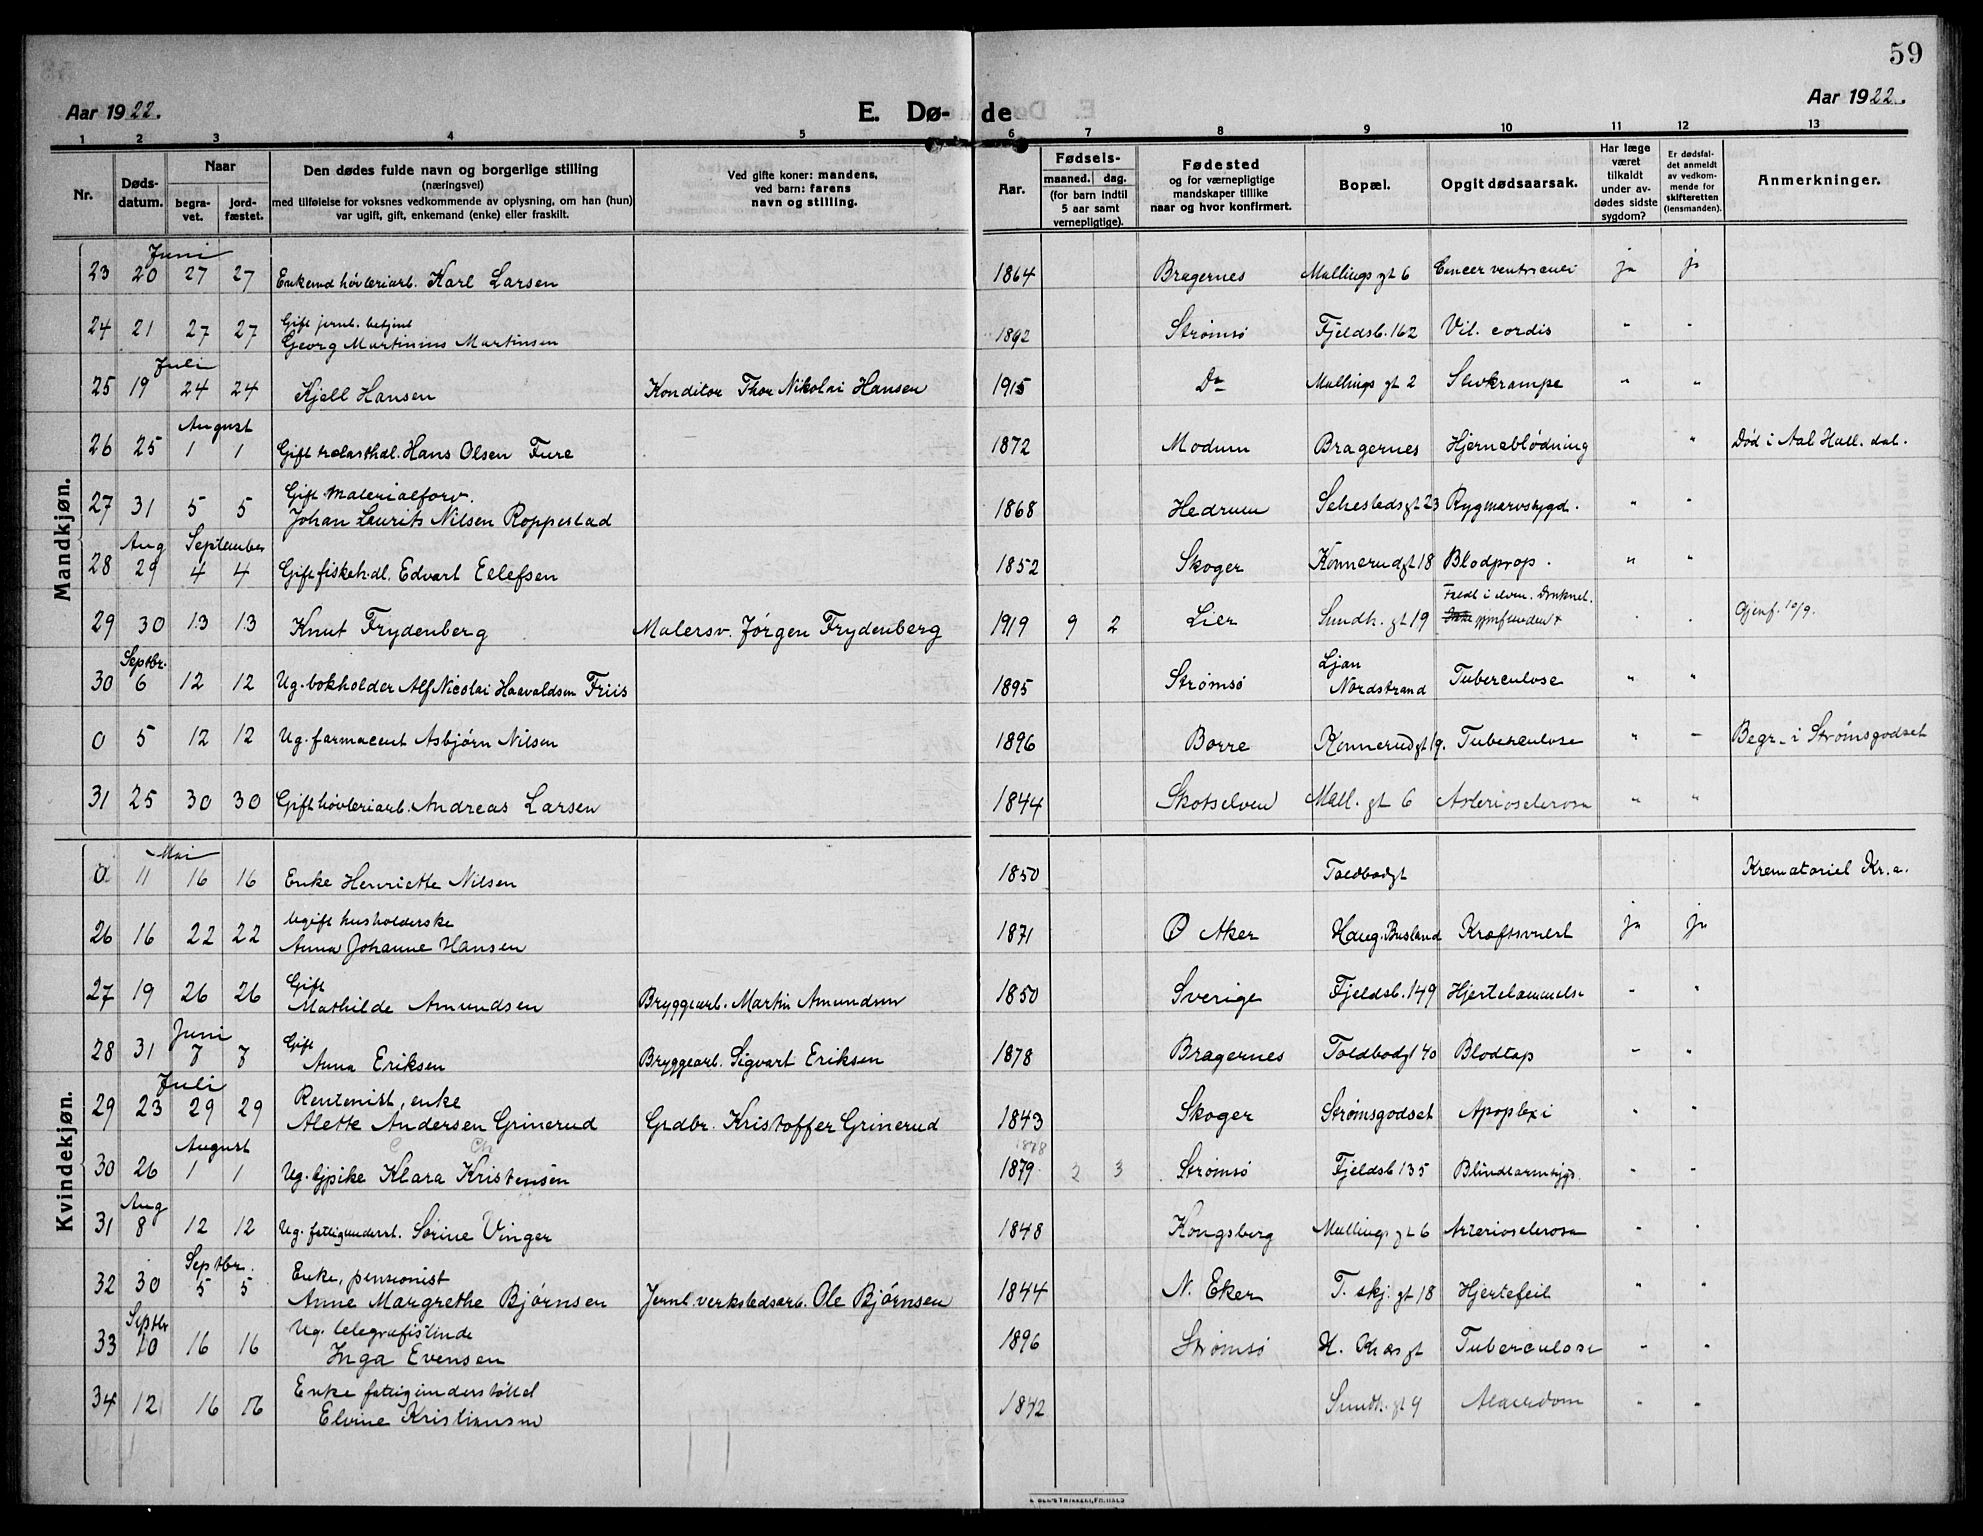 59
Aar 1922.
E. Dø- de
Aar 1922.
1 2 3 4 5 6 7 8 9 10 11 12 13
Nr.
Døds-
datum.
Naar
begra-
vet.
jord-
fæstet.
Den dødes fulde navn og borgerlige stilling
(næringsvei)
med tilføielse for voksnes vedkommende av oplysning, om han (hun)
var ugift, gift, enkemand (enke) eller fraskilt.
Ved gifte koner: mandens,
ved barn: farens
navn og stilling.
Aar.
Fødsels-
maaned. dag.
(for barn indtil
5 aar samt
vernepligtige).
Fødested
og for værnepligtige
mandskaper tillike
naar og hvor konfirmert.
Bopæl.
Opgit dødsaarsak.
Har læge
været
tilkaldt
under av-
dødes sidste
sygdom?
Er dødsfal-
det anmeldt
av vedkom-
mende for
skifteretten
(lensmanden).
Anmerkninger.
Mandkjøn.
Juni
23 20 27 27 Enkemd høvleriarb. Karl Larsen 1864 Bragernes Mallings gt 6 Cancer ventriculi ja ja
Gift jernb. betjent
24 21 27 27 Georg Martinius Martinsen 1892 Strømsø Fjeldsb. 162 Vit. cordis " "
Juli
25 19 24 24 Kjell Hansen Konditor Thor Nikolai Hansen 1915 Do Mallings gt 2 Slvkrampe " "
August
26 25 1 1 Gift trelasthdl. Hans Olsen Fure 1872 Modum Bragernes Hjerneblødning " Død i Aal Hall. dal.
Gift Materialforv.
27 31 5 5 Johan Laurits Nilsen Roppestad 1868 Hedrum Sehestedsgt 23 Rygmarvsygd. "
Aug September
28 29 4 4 Gift fiskehdl. Edvart Ellefsen 1852 Skoger Konnerudgt 18 Blodprop. " "
Faldt i elven. Druknet.
29 30 13 13 Knut Frydenberg Malersv. Jørgen Frydenberg 1919 9 2 Lier Sundh. gt 19 Ikke gjenfunden + " " Gjenf. 10/9.
Septbr.
30 6 12 12 Ug. bokholder Alf Nicolai Haavaldsen Friis 1895 Strømsø Ljan Nordstrand Tuberculose " "
0 5 12 12 Ug. farmaceut Asbjørn Nilsen 1896 Borre Konnerudgt 19. Tuberculose " - Begr. i Strømsgodset
31 25 30 30 Gift høvleriarb. Andreas Larsen 1844 Skotselven Mall. gt 6 Asterioselerosa " "
Kvindekjøn.
Mai
0 11 16 16 Enke Henriette Nilsen 1850 Toldbodgt Krematoriet Kr.a.
Ugift husholderske
26 16 22 22 Anna Johanne Hansen 1871 Ø Aker Haug. Busland Kræftsvulst ja ja
Gift
27 19 26 26 Mathilde Amundsen Bryggearb. Martin Amundsen 1850 Sverige Fjeldsb. 149 Hjertelammelse " "
Juni
Gift
28 31 7 7 Anna Eriksen Bryggearb. Sigvart Eriksen 1878 Bragernes Toldbodgt 40 Blodtap " "
Juli
Rentenist, enke
29 23 29 29 Alette Andersen Grinerud Grdbr. Kristoffer Grinerud 1843 Skoger Strømsgodset Apoplexi " "
August C Ch 1878
30 26 1 1 Ug. Klara Kristensen 1879 2 3 Strømsø Fjeldsb 135 Blindtarmsygd. " "
Aug
31 8 12 12 Ug. fattigunderst. Serine Vinger 1848 Kongsberg Mallings gt 6 Arterioselerosa " "
Septbr.
Enke, pensionist
32 30 5 5 Anne Margrethe Bjørnsen Jernb. verkstedsarb. Ole Bjørnsen 1844 N. Eker T. skj. gt 18 Hjertefeil " "
Septbr
Ug. telegrafistinde
33 10 16 16 Inga Evensen 1896 Strømsø H. Kiærs gt Tuberculose " "
Enke fattigunderstøttet
34 12 16 16 Elvine Kristiansen 1842 Sundh. gt 9 Alderdom " "